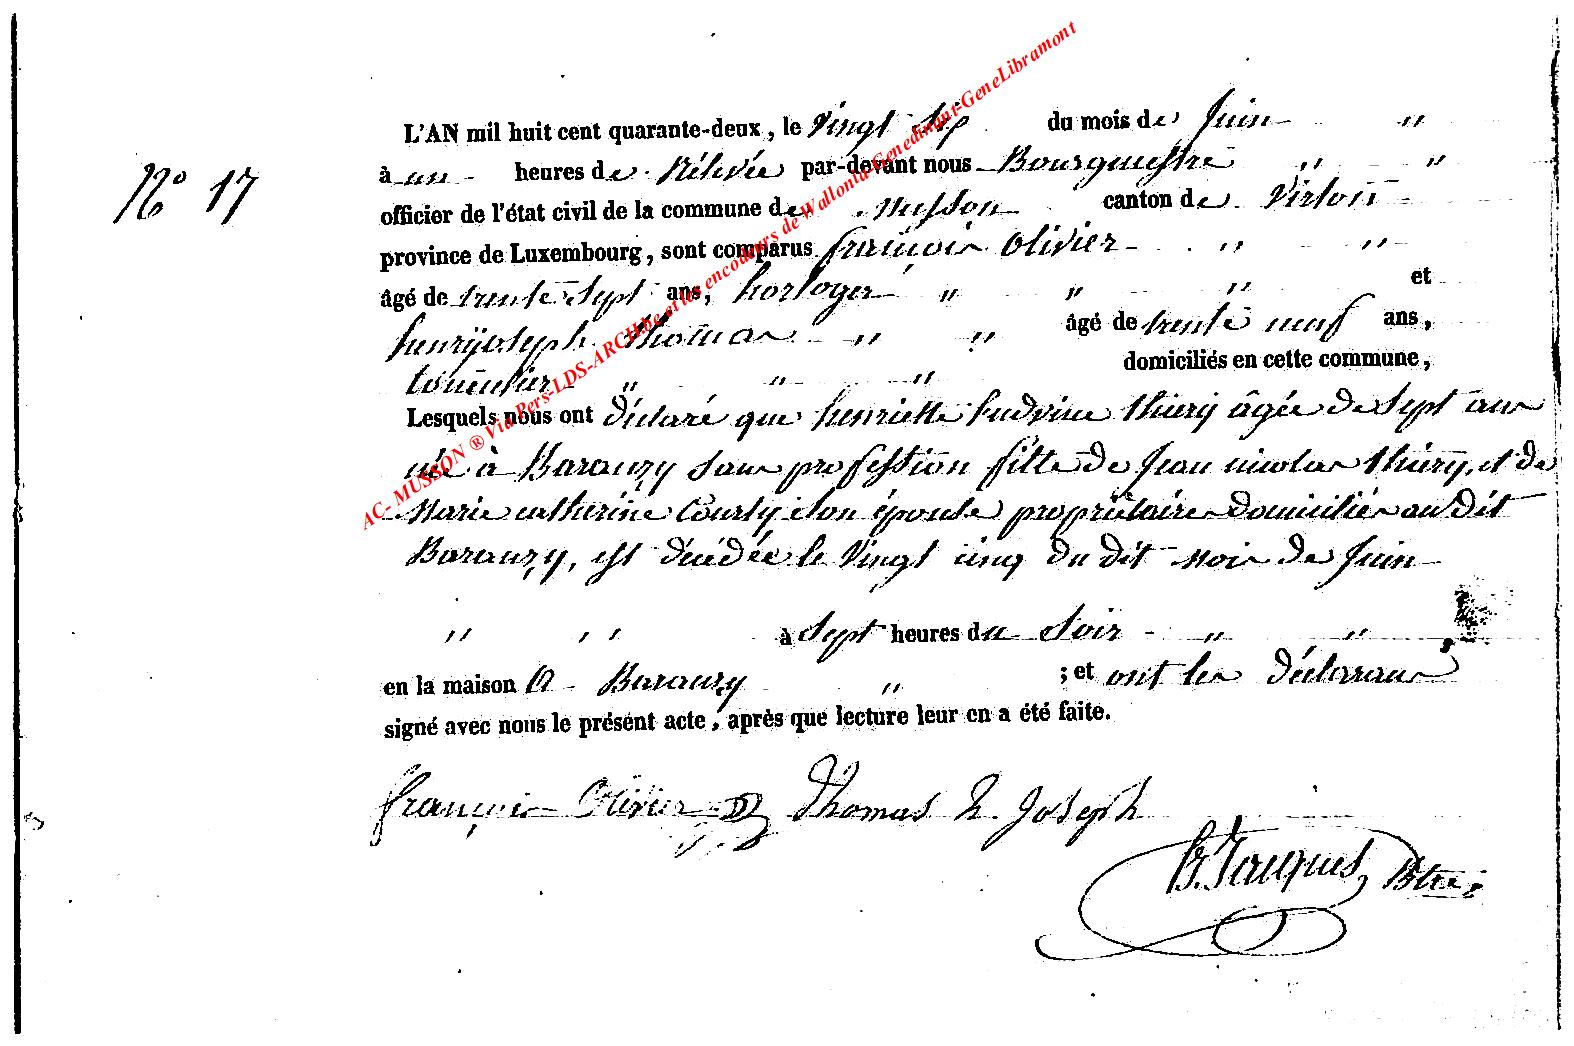 N° 17
L'AN mil huit cent quarante-deux, le Vingt Six du mois de Juin "
à un heures de Rélevée par-devant nous Bourgmestre " "
officier de l'état civil de la commune de Musson canton de Virton
province de Luxembourg, sont comparus françois Olivier " "
âgé de trente Sept ans, horloger " " " et
henryjoseph thomas " " âgé de trente neuf ans,
tonnelier " " " domiciliés en cette commune,
Lesquels nous ont déclaré que henriette Ludvine thiery âgée de Sept ans
née à Baranzy sans profession fille de Jean nicolas thiery, et de
Marie catherine Courty son épouse propriétaires domiciliés au dit
Baranzy, est décédée le Vingt cinq du dit mois de Juin
" " à Sept heures du Soir " "
en la maison a Baranzy " ; et ont les déclarans
signé avec nous le présent acte, après que lecture leur en a été faite.
françois Olivier Thomas h. Joseph
B. Jacques Btre
AC- MUSSON ® Via Pers-LDS-ARCH.be et les encodeurs de Wallonia-Genedinant-GeneLibramont